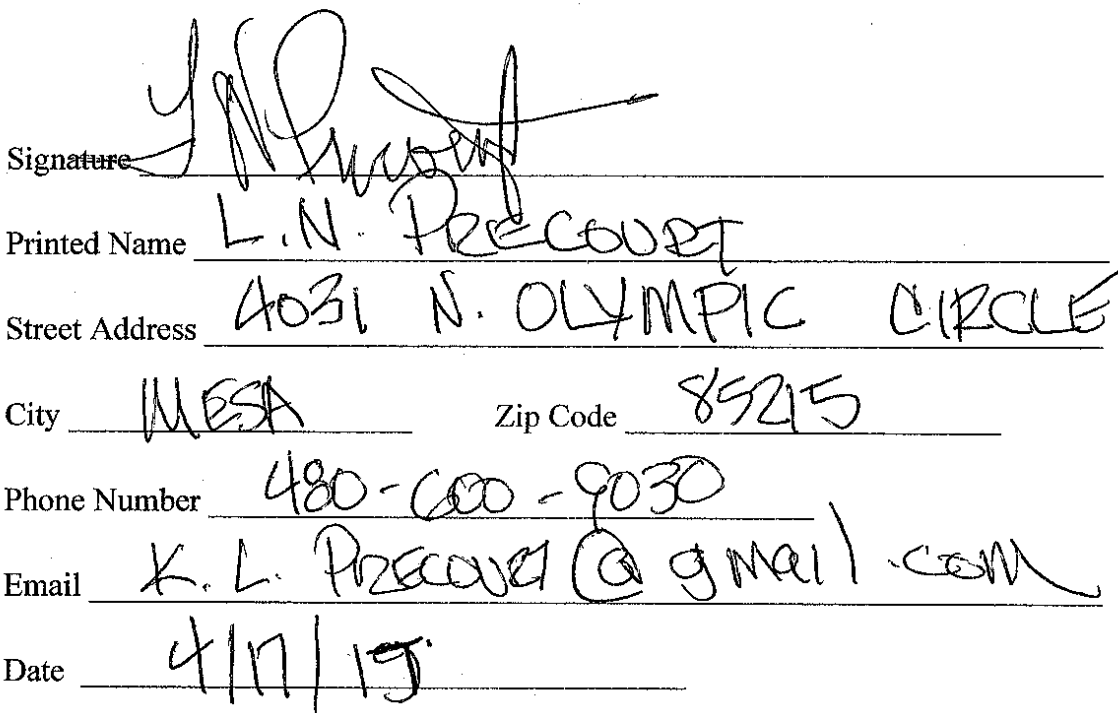 Signature
Printed Name L.N. PRECOURT
Street Address 4031 N. OLYMPIC CIRCLE
City MESA Zip Code 85215
Phone Number 480-600-9030
Email K.L. PRECOURT@gmail.com
Date 4/17/15